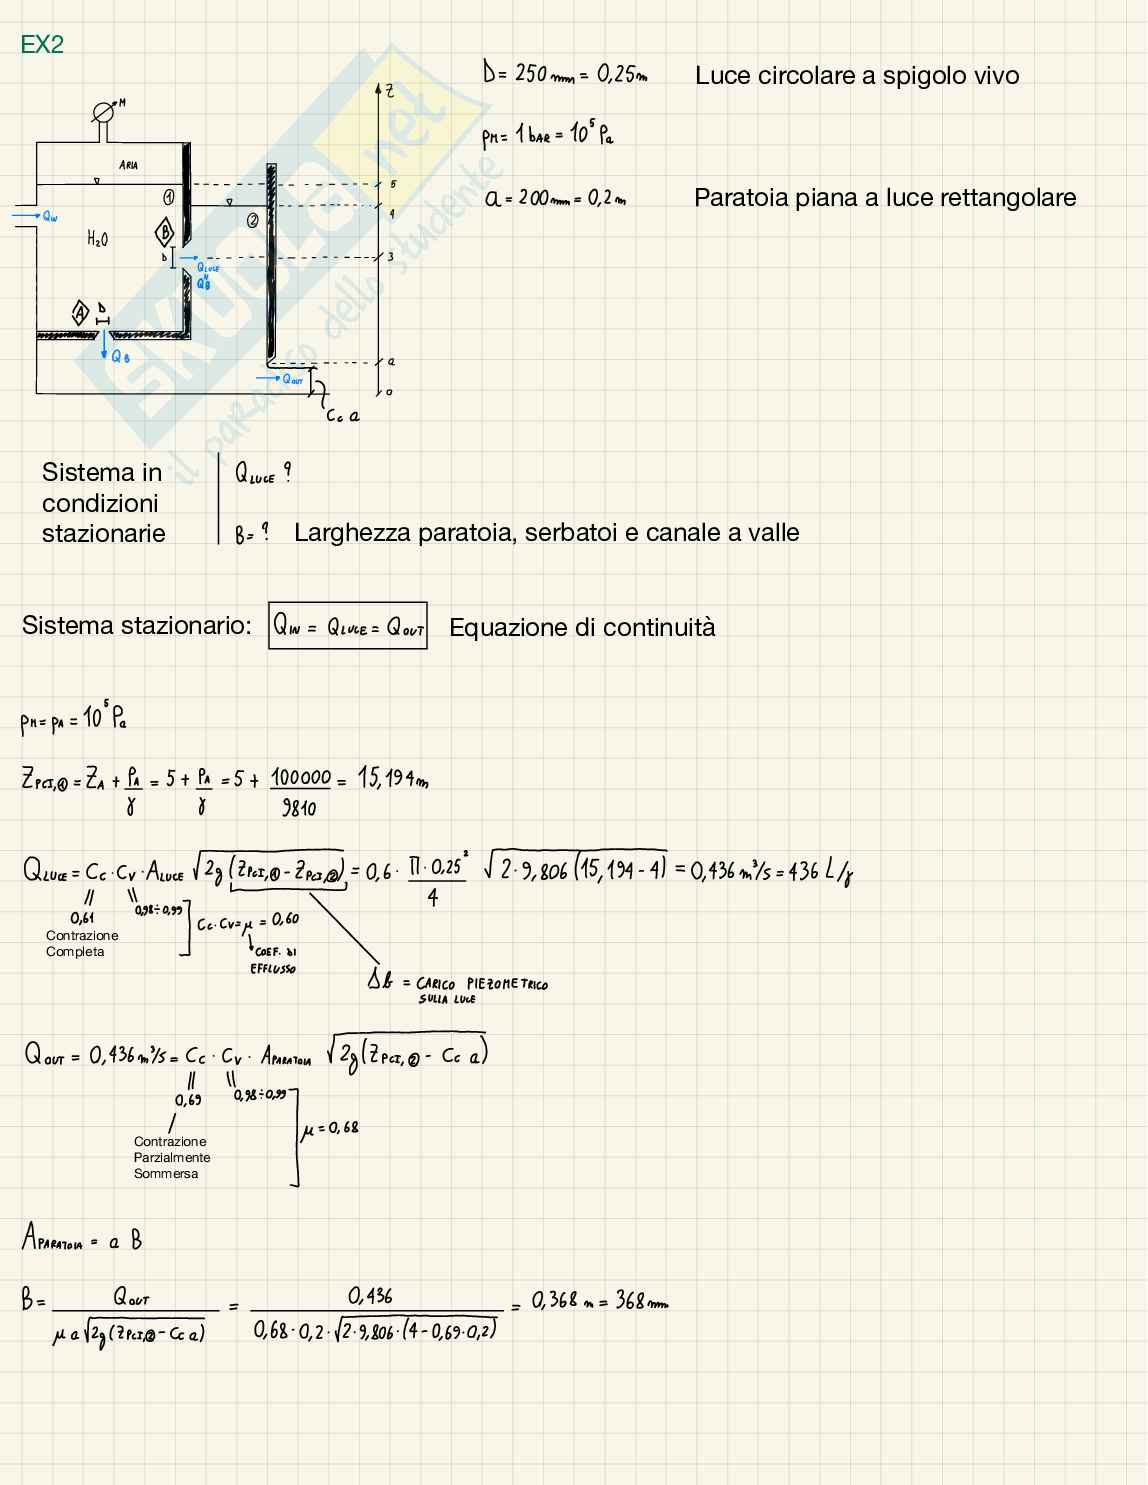 EX2
D = 250 mm = 0,25 m Luce circolare a spigolo vivo
pM = 1 bar = 10⁵ Pa
a = 200 mm = 0,2 m Paratoia piana a luce rettangolare
M
Z
ARIA
5
①
4
②
QIN
H₂O
B
D
3
QLUCE
QB
A
D
QB
a
QOUT
0
Cc a
SKUOLA.net
il paradiso dello studente
Sistema in
condizioni
stazionarie
QLUCE ?
B = ? Larghezza paratoia, serbatoi e canale a valle
Sistema stazionario: QIN = QLUCE = QOUT Equazione di continuità
pM = pA = 10⁵ Pa
ZPCI,① = ZA + pA/γ = 5 + pA/γ = 5 + 100000/9810 = 15,194 m
QLUCE = Cc · Cv · ALUCE √2g (ZPCI,① − ZPCI,②) = 0,6 · Π · 0,25²/4 √2 · 9,806 (15,194 − 4) = 0,436 m³/s = 436 L/s
0,61 0,98 ÷ 0,99
Contrazione
Completa
Cc · Cv = μ = 0,60
COEF. DI
EFFLUSSO
Δh = CARICO PIEZOMETRICO
SULLA LUCE
QOUT = 0,436 m³/s = Cc · Cv · APARATOIA √2g (ZPCI,② − Cc a)
0,69 0,98 ÷ 0,99
μ = 0,68
Contrazione
Parzialmente
Sommersa
APARATOIA = a B
B = QOUT/μ a √2g (ZPCI,② − Cc a) = 0,436/0,68 · 0,2 · √2 · 9,806 · (4 − 0,69 · 0,2) = 0,368 m = 368 mm